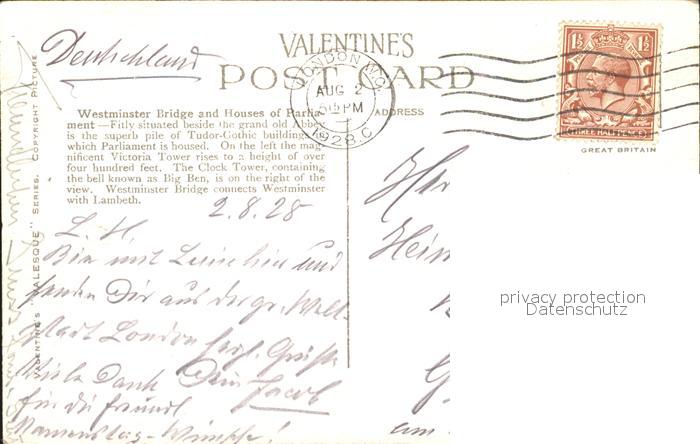 Deutschland
VALENTINE'S
POST CARD
LONDON. W.C.
AUG 2
1928.C
1½ 1½
THREE HALFPENCE
GREAT BRITAIN
ADDRESS
Westminster Bridge and Houses of Parlia-
ment —Fitly situated beside the grand old Abbey
is the superb pile of Tudor-Gothic buildings in
which Parliament is housed. On the left the mag-
nificent Victoria Tower rises to a height of over
four hundred feet. The Clock Tower, containing
the bell known as Big Ben, is on the right of the
view. Westminster Bridge connects Westminster
with Lambeth.
VALENTINE'S "VALESQUE" SERIES. COPYRIGHT PICTURE
2.8.28
L. H.
Bin mit Luischen und
senden Dir aus der gr. Welt-
stadt London herzl. Grüße
Viele Dank Dein Jacob
für die freundl.
Namenstag-Wünsche!
Her
Hein
am
privacy protection
Datenschutz